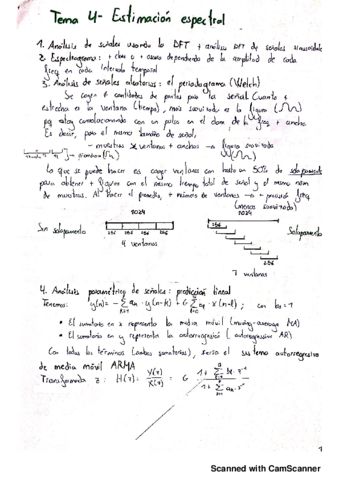 Tema 4 - Estimación espectral
1. Análisis de señales usando la DFT + análisis DFT de señales sinusoidales
2. Espectrograma: + claro o + oscuro dependiendo de la amplitud de cada
freq en cada intervalo temporal
3. Análisis de señales aleatorias: el periodograma (Welch)
Se cogen cantidades de puntos para las señal. Cuanto +
estrecha es la ventana (tiempo), más suavizada es la figura
pq estoy convolucionando con un pulso en el dom de la freq + ancho.
Es decir, para el mismo tamaño de señal,
- muestras x ventanas + anchas → figura suavizada
Lo que se puede hacer es coger ventanas con hasta un 50% de solapamiento
para obtener + figuras con el mismo tiempo total de señal y el mismo num
de muestras. Al hacer el promedio, + número de ventanas → + precisión freq.
(menos suavizado)
1024 1024
Sin solapamiento 256 256 Solapamiento
4 ventanas
256
7 ventanas
4. Análisis paramétrico de señales: predicción lineal
Tenemos: y(n) = - Σ aₖ · y(n-k) + G Σ bₗ · x(n-l) ; con b₀ = 1
• El sumatorio en x representa la media móvil (moving-average MA)
• El sumatorio en y representa la autorregresión (autoregressive AR)
Con todos los términos (ambos sumatorios), sería el sistema autorregresivo
de media móvil ARMA
Transformada z: H(z) = Y(z)/X(z) = G (1 + Σ bₗ · z⁻ˡ)/(1 + Σ aₖ · z⁻ᵏ)
1
Scanned with CamScanner